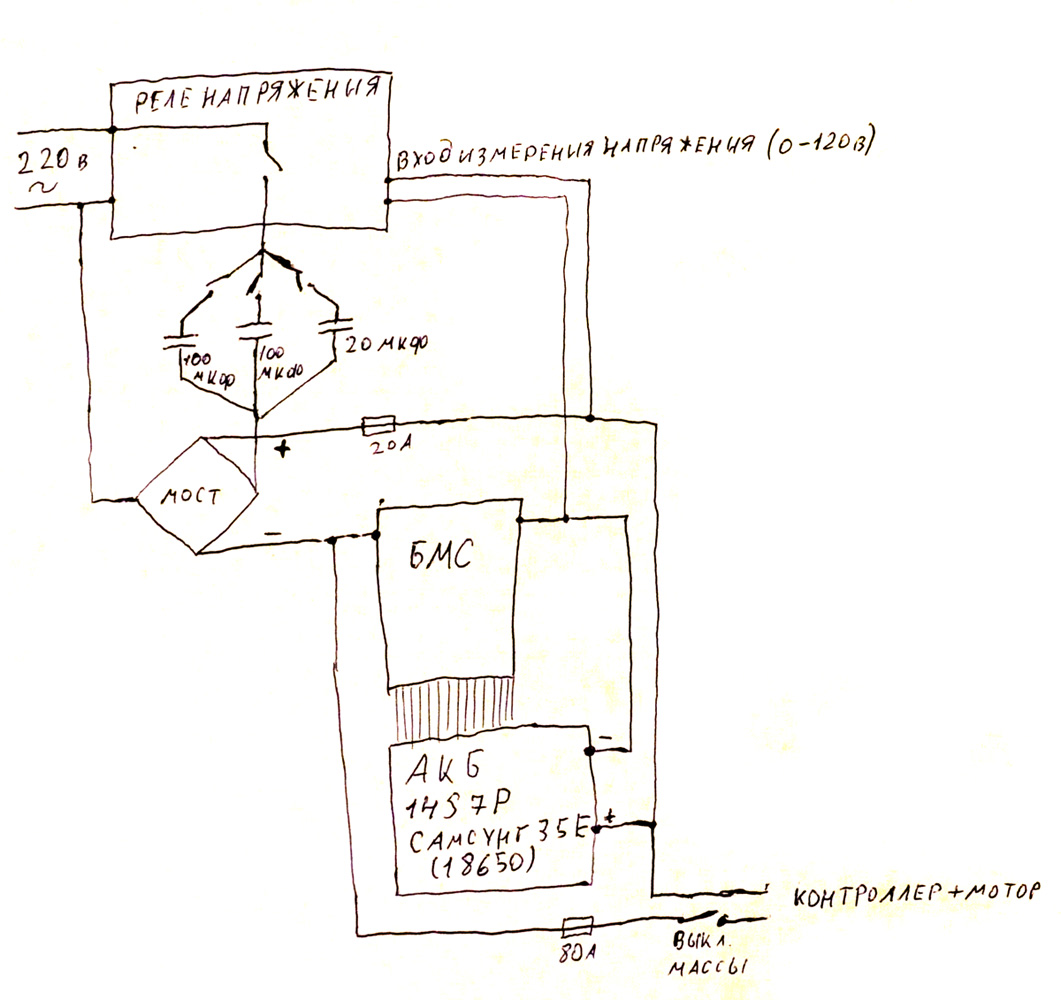 РЕЛЕ НАПРЯЖЕНИЯ
220 В
~
ВХОД ИЗМЕРЕНИЯ НАПРЯЖЕНИЯ (0-120В)
100 МКФ
100 МКФ
20 МКФ
+
20А
МОСТ
-
БМС
-
АКБ
14S 7P
+
САМСУНГ 35Е
(18650)
КОНТРОЛЛЕР+МОТОР
80А
ВЫКЛ.
МАССЫ